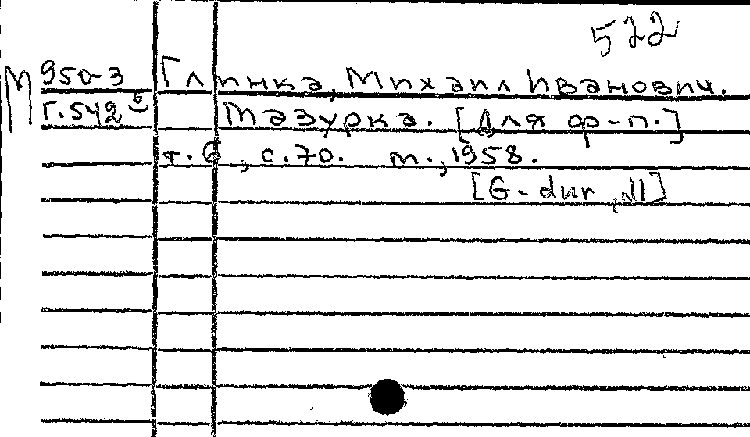 522
М 950-3 Глинка, Михаил Иванович.
Г.542 Мазурка. [Для ф-п.]
т. 6, с.70. м., 1958.
[G-dur,